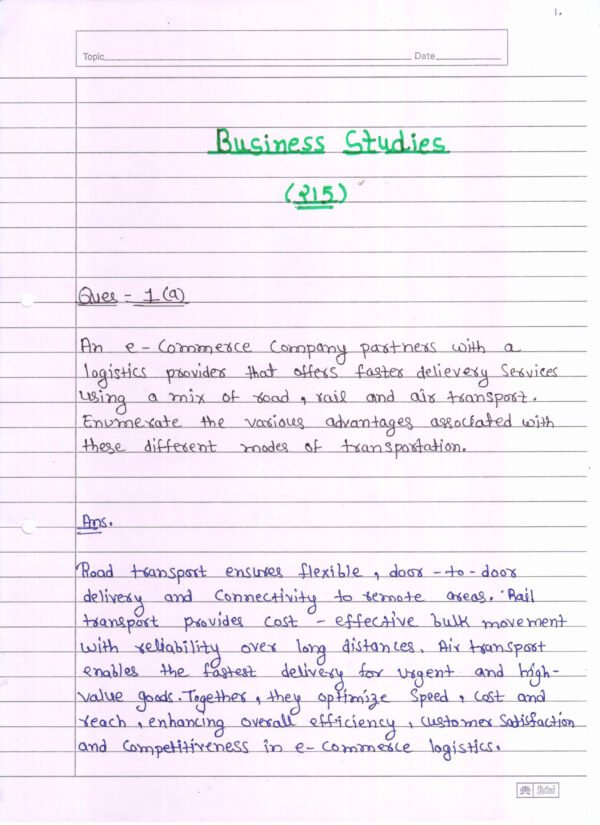 1.
Topic Date
Business Studies
(215)
Ques = 1(a)
An e-Commerce Company partners with a
logistics provider that offers faster delievery Services
using a mix of road, rail and air transport.
Enumerate the various advantages associated with
these different modes of transportation.
Ans.
Road transport ensures flexible, door-to-door
delivery and Connectivity to remote areas. Rail
transport provides cost-effective bulk movement
with reliability over long distances. Air transport
enables the fastest delivery for urgent and high-
value goods. Together, they optimize Speed, Cost and
reach, enhancing overall efficiency, Customer Satisfaction
and Competitiveness in e-Commerce logistics.